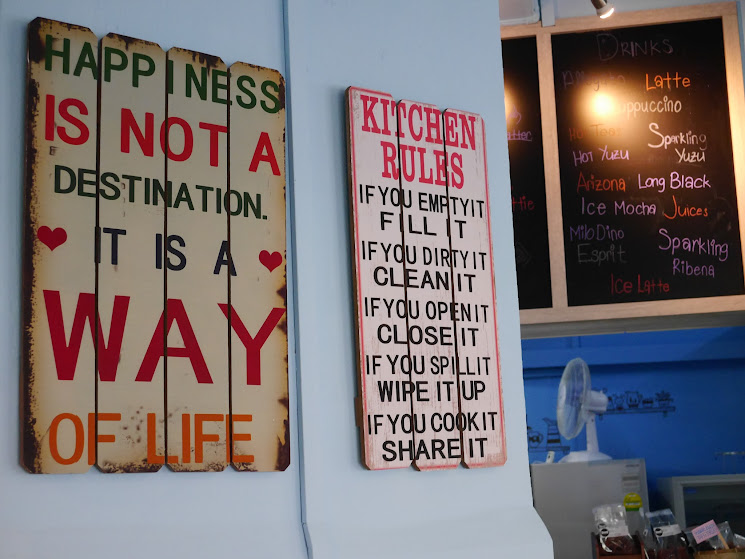 HAPPINESS
IS NOT A
DESTINATION.
IT IS A
WAY
OF LIFE
KITCHEN
RULES
IF YOU EMPTY IT
FILL IT
IF YOU DIRTY IT
CLEAN IT
IF YOU OPEN IT
CLOSE IT
IF YOU SPILL IT
WIPE IT UP
IF YOU COOK IT
SHARE IT
DRINKS
Latte
Sparkling
Hot Yuzu Yuzu
Arizona Long Black
Ice Mocha Juices
Milo Dino Sparkling
Esprit Ribena
Ice Latte